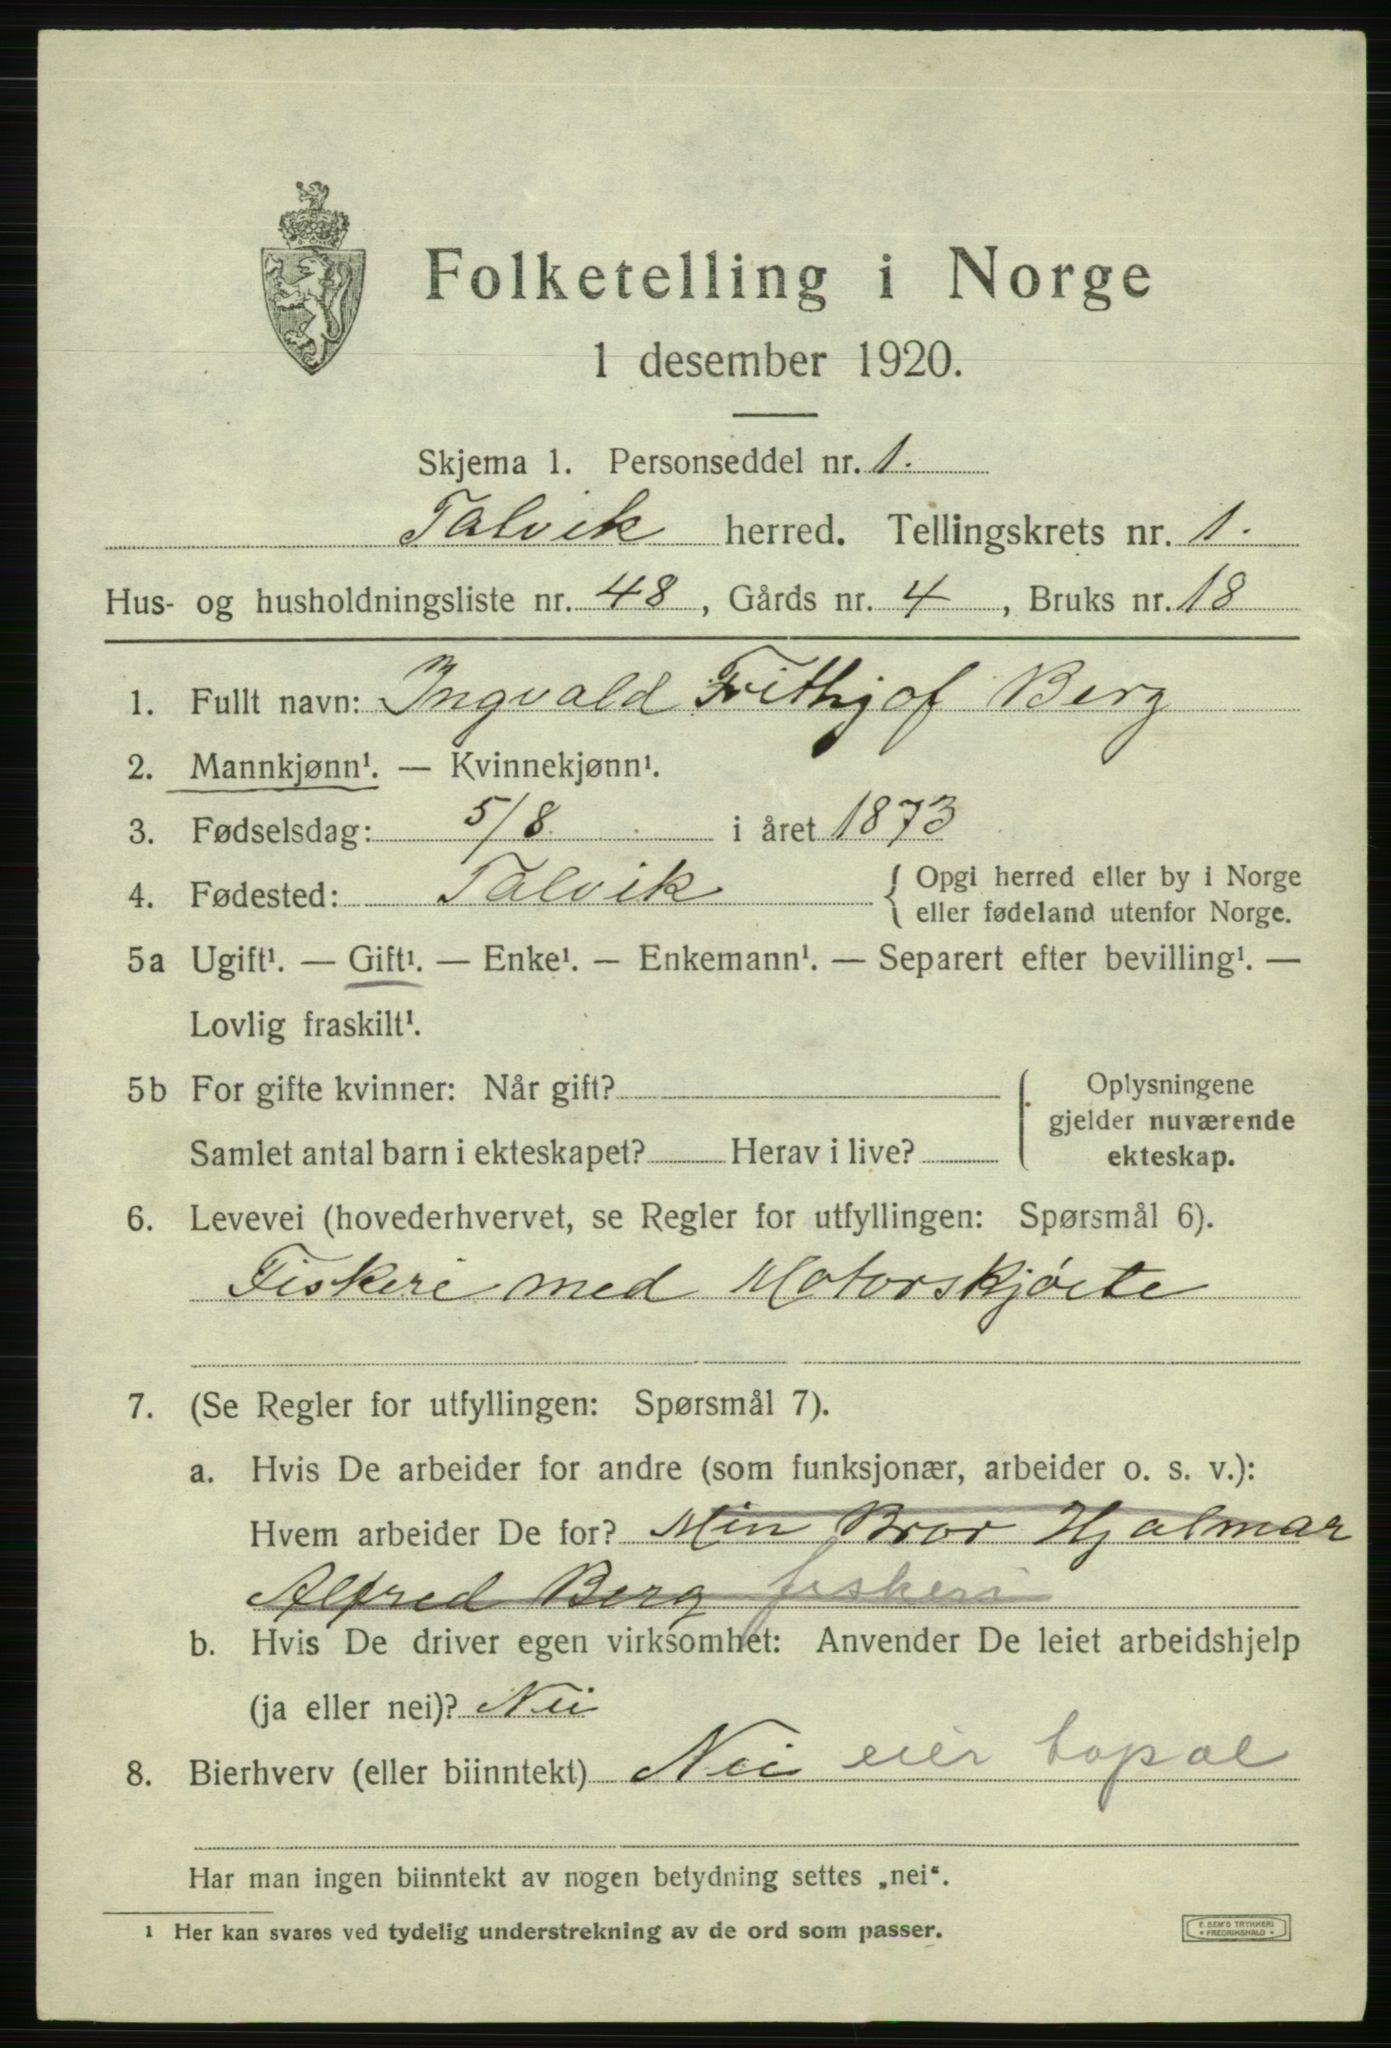 Folketelling i Norge
1 desember 1920.
Skjema 1. Personseddel nr. 1.
Talvik herred. Tellingskrets nr. 1.
Hus- og husholdningsliste nr. 48, Gårds nr. 4, Bruks nr. 18
1. Fullt navn: Ingvald Frithjof Berg
2. Mannkjønn¹. — Kvinnekjønn¹.
3. Fødselsdag: 5/8 i året 1873
4. Fødested: Talvik { Opgi herred eller by i Norge
eller fødeland utenfor Norge.
5a Ugift¹. — Gift¹. — Enke¹. — Enkemann¹. — Separert efter bevilling¹. —
Lovlig fraskilt¹.
5b For gifte kvinner: Når gift?
Samlet antal barn i ekteskapet? Herav i live?
Oplysningene
gjelder nuværende
ekteskap.
6. Levevei (hovederhvervet, se Regler for utfyllingen: Spørsmål 6).
Fiskeri med Motorskjøite
7. (Se Regler for utfyllingen: Spørsmål 7).
a. Hvis De arbeider for andre (som funksjonær, arbeider o. s. v.):
Hvem arbeider De for? Min Bror Hjalmar
Alfred Berg fiskeri
b. Hvis De driver egen virksomhet: Anvender De leiet arbeidshjelp
(ja eller nei)? Nei
8. Bierhverv (eller biinntekt) Nei eier
Har man ingen biinntekt av nogen betydning settes „nei".
1 Her kan svares ved tydelig understrekning av de ord som passer.
E. SEM'S TRYKKERI
* FREDRIKSHALD *